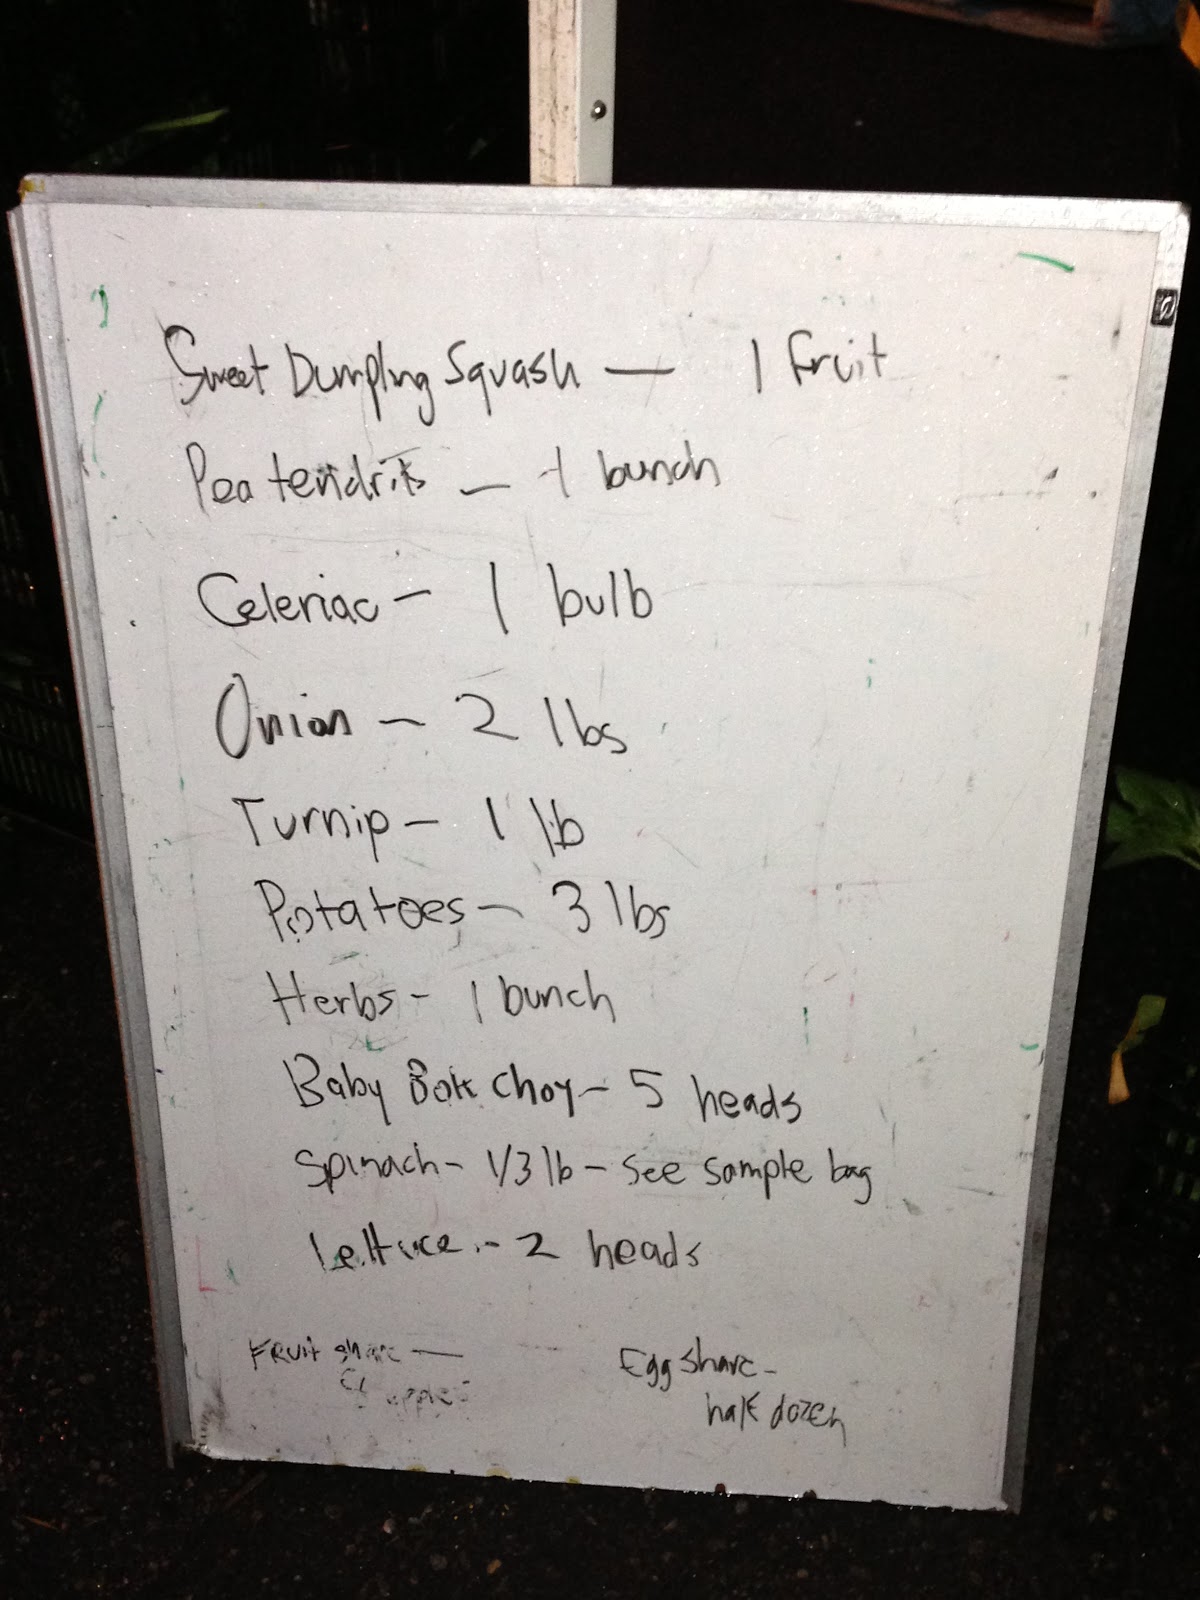 Sweet Dumpling Squash — 1 fruit
Pea tendrils — 1 bunch
Celeriac — 1 bulb
Onion — 2 lbs
Turnip — 1 lb
Potatoes — 3 lbs
Herbs - 1 bunch
Baby Bok Choy - 5 heads
Spinach - 1/3 lb - See sample bag
Lettuce - 2 heads
Fruit share —
apples
Egg share -
half dozen